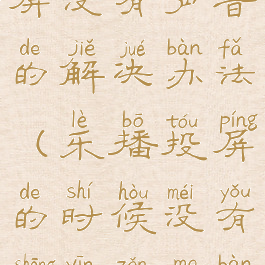 屏没有声音
de jiě jué bàn fǎ
的解决办法
lè bō tóu píng
（乐播投屏
de shí hòu méi yǒu
的时候没有
shēng yīn zěn me bàn